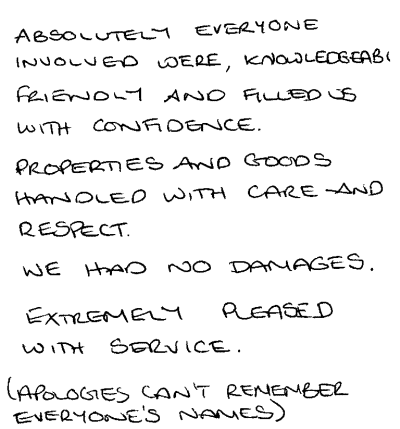 ABSOLUTELY EVERYONE
INVOLVED WERE, KNOWLEDGEABL
FRIENDLY AND FILLED US
WITH CONFIDENCE.
PROPERTIES AND GOODS
HANDLED WITH CARE AND
RESPECT.
WE HAD NO DAMAGES.
EXTREMELY PLEASED
WITH SERVICE.
(APOLOGIES CAN'T REMEMBER
EVERYONE'S NAMES)